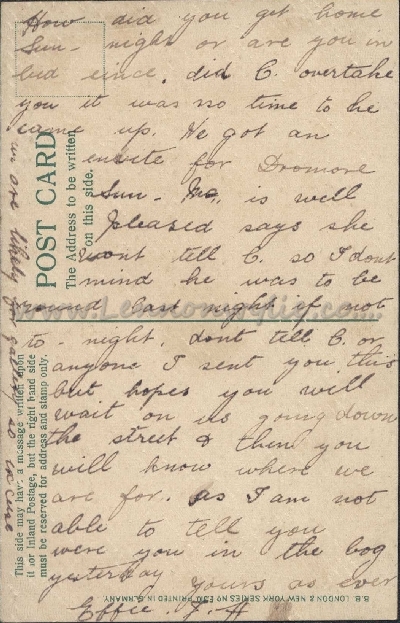 How did you get home
Sun- night or are you in
bed since. did C. overtake
you it was no time to he
came up. We got an
invite for Dromore
Sun- Ma, is well
pleased says she
wont tell C. so I dont
mind he was to be
round last night if not
to- night. dont tell C. or
anyone I sent you this
but hopes you will
wait on us going down
the street & then you
will know where we
are for. as I am not
able to tell you
were you in the bog
yesterday yours as ever
Effie. F. H
POST CARD
The Address to be written
on this side.
This side may have a message written upon
it for Inland Postage, but the right hand side
must be reserved for address and stamp only.
are likely for no excuse
B.B. LONDON & NEW YORK SERIES No PRINTED IN GERMANY